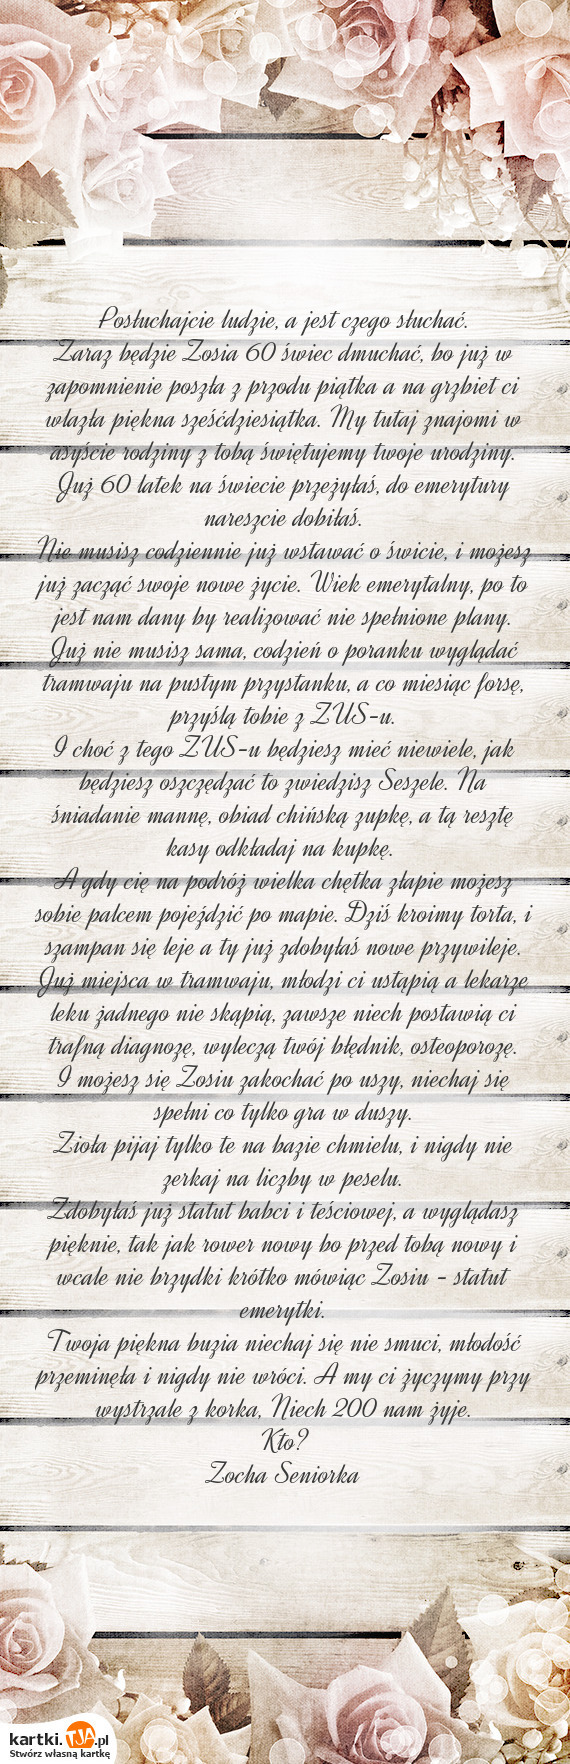 Posłuchajcie ludzie, a jest czego słuchać.
Zaraz będzie Zosia 60 świec dmuchać, bo już w
zapomnienie poszła z przodu piątka a na grzbiet ci
wlazła piękna sześćdziesiątka. My tutaj znajomi w
asyście rodziny z tobą świętujemy twoje urodziny.
Już 60 latek na świecie przeżyłaś, do emerytury
nareszcie dobiłaś.
Nie musisz codziennie już wstawać o świcie, i możesz
już zacząć swoje nowe życie. Wiek emerytalny, po to
jest nam dany by realizować nie spełnione plany.
Już nie musisz sama, codzień o poranku wyglądać
tramwaju na pustym przystanku, a co miesiąc forsę,
przyślą tobie z ZUS-u.
I choć z tego ZUS-u będziesz mieć niewiele, jak
będziesz oszczędzać to zwiedzisz Seszele. Na
śniadanie mannę, obiad chińską zupkę, a tą resztę
kasy odkładaj na kupkę.
A gdy cię na podróż wielka chętka złapie możesz
sobie palcem pojeździć po mapie. Dziś kroimy torta, i
szampan się leje a ty już zdobyłaś nowe przywileje.
Już miejsca w tramwaju, młodzi ci ustąpią a lekarze
leku żadnego nie skąpią, zawsze niech postawią ci
trafną diagnozę, wyleczą twój błędnik, osteoporozę.
I możesz się Zosiu zakochać po uszy, niechaj się
spełni co tylko gra w duszy.
Zioła pijaj tylko te na bazie chmielu, i nigdy nie
zerkaj na liczby w peselu.
Zdobyłaś już statut babci i teściowej, a wyglądasz
pięknie, tak jak rower nowy bo przed tobą nowy i
wcale nie brzydki krótko mówiąc Zosiu - statut
emerytki.
Twoja piękna buzia niechaj się nie smuci, młodość
przeminęła i nigdy nie wróci. A my ci życzymy przy
wystrzale z korka, Niech 200 nam żyje.
Kto?
Zocha Seniorka
kartki.TJA.pl
Stwórz własną kartkę